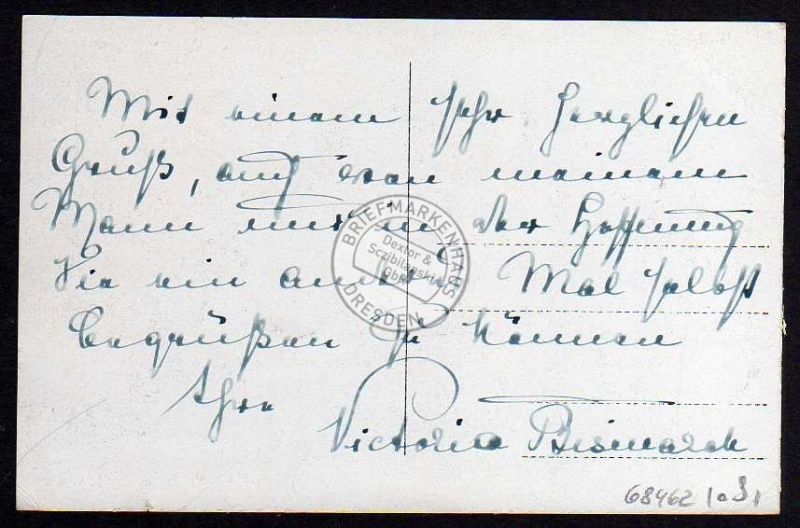 Mit einem sehr herzlichen
Gruß, auch von meinem
Mann und in der Hoffnung
Sie ein andres Mal selbst
begrüßen zu können
Ihre
Victoria Bismarck
BRIEFMARKENHAUS
Dextor &
Sczibilanski
GbR
DRESDEN
68462